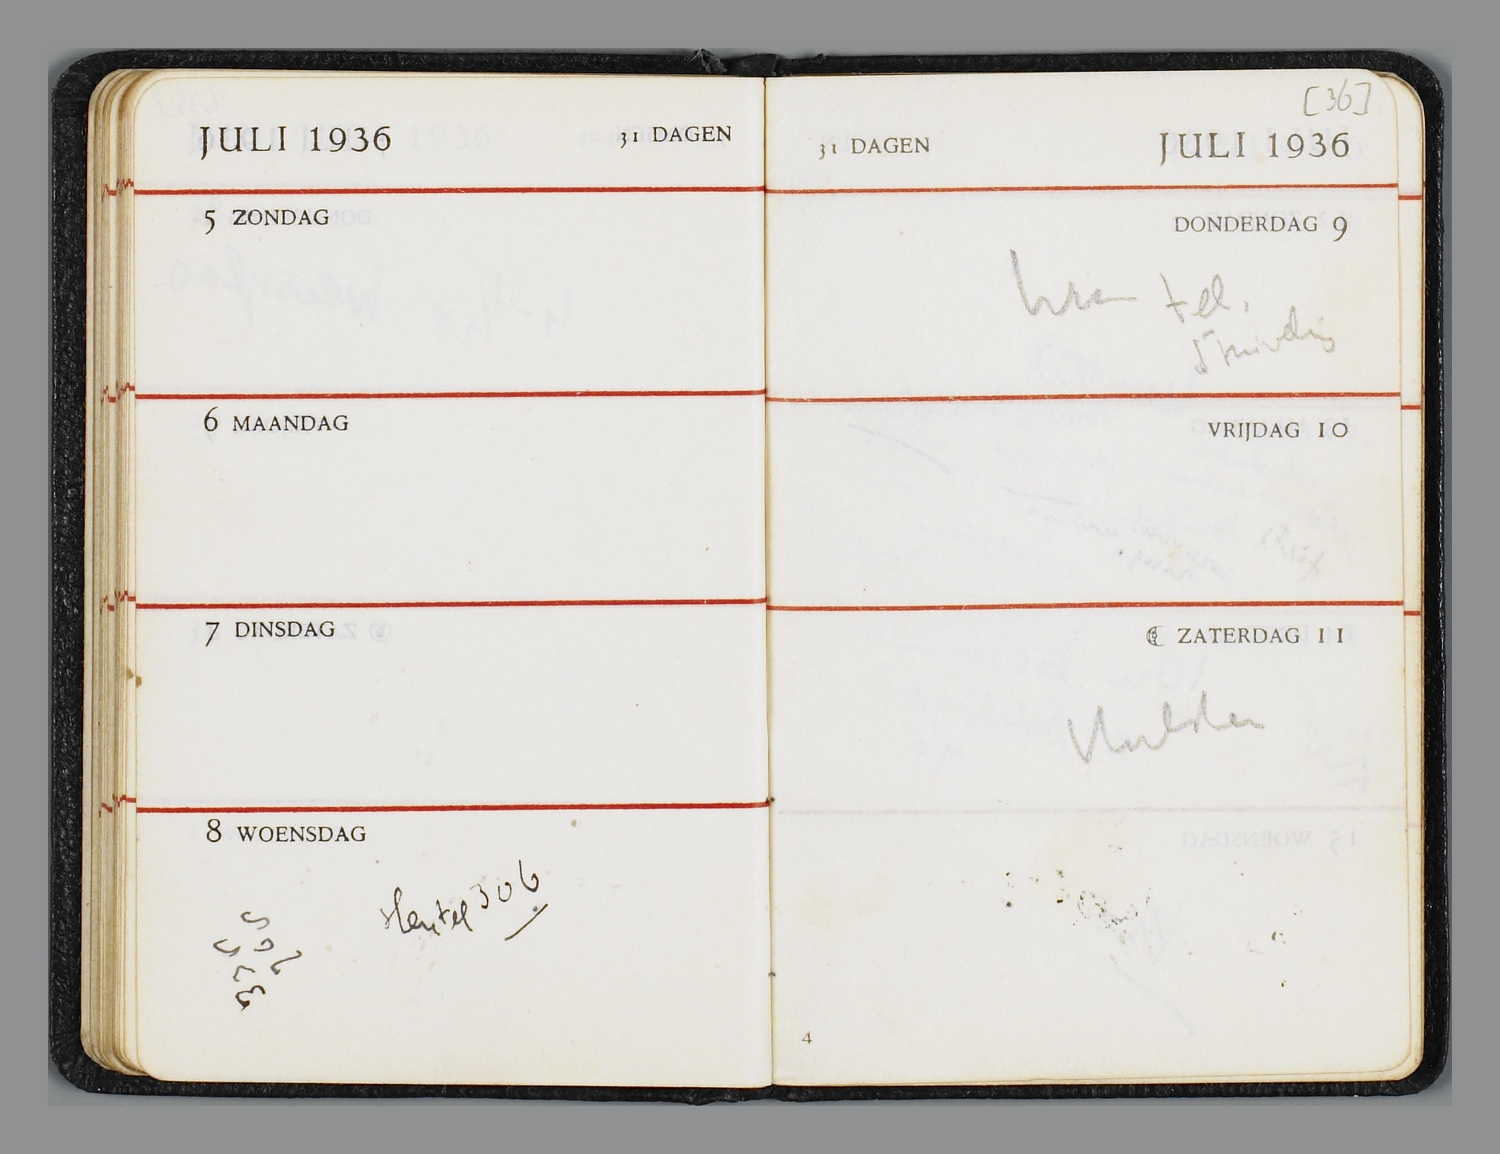 JULI 1936 31 DAGEN
5 ZONDAG
6 MAANDAG
7 DINSDAG
8 WOENSDAG
sleutel 306
[36]
31 DAGEN JULI 1936
DONDERDAG 9
tel.
VRIJDAG 10
ZATERDAG 11
4